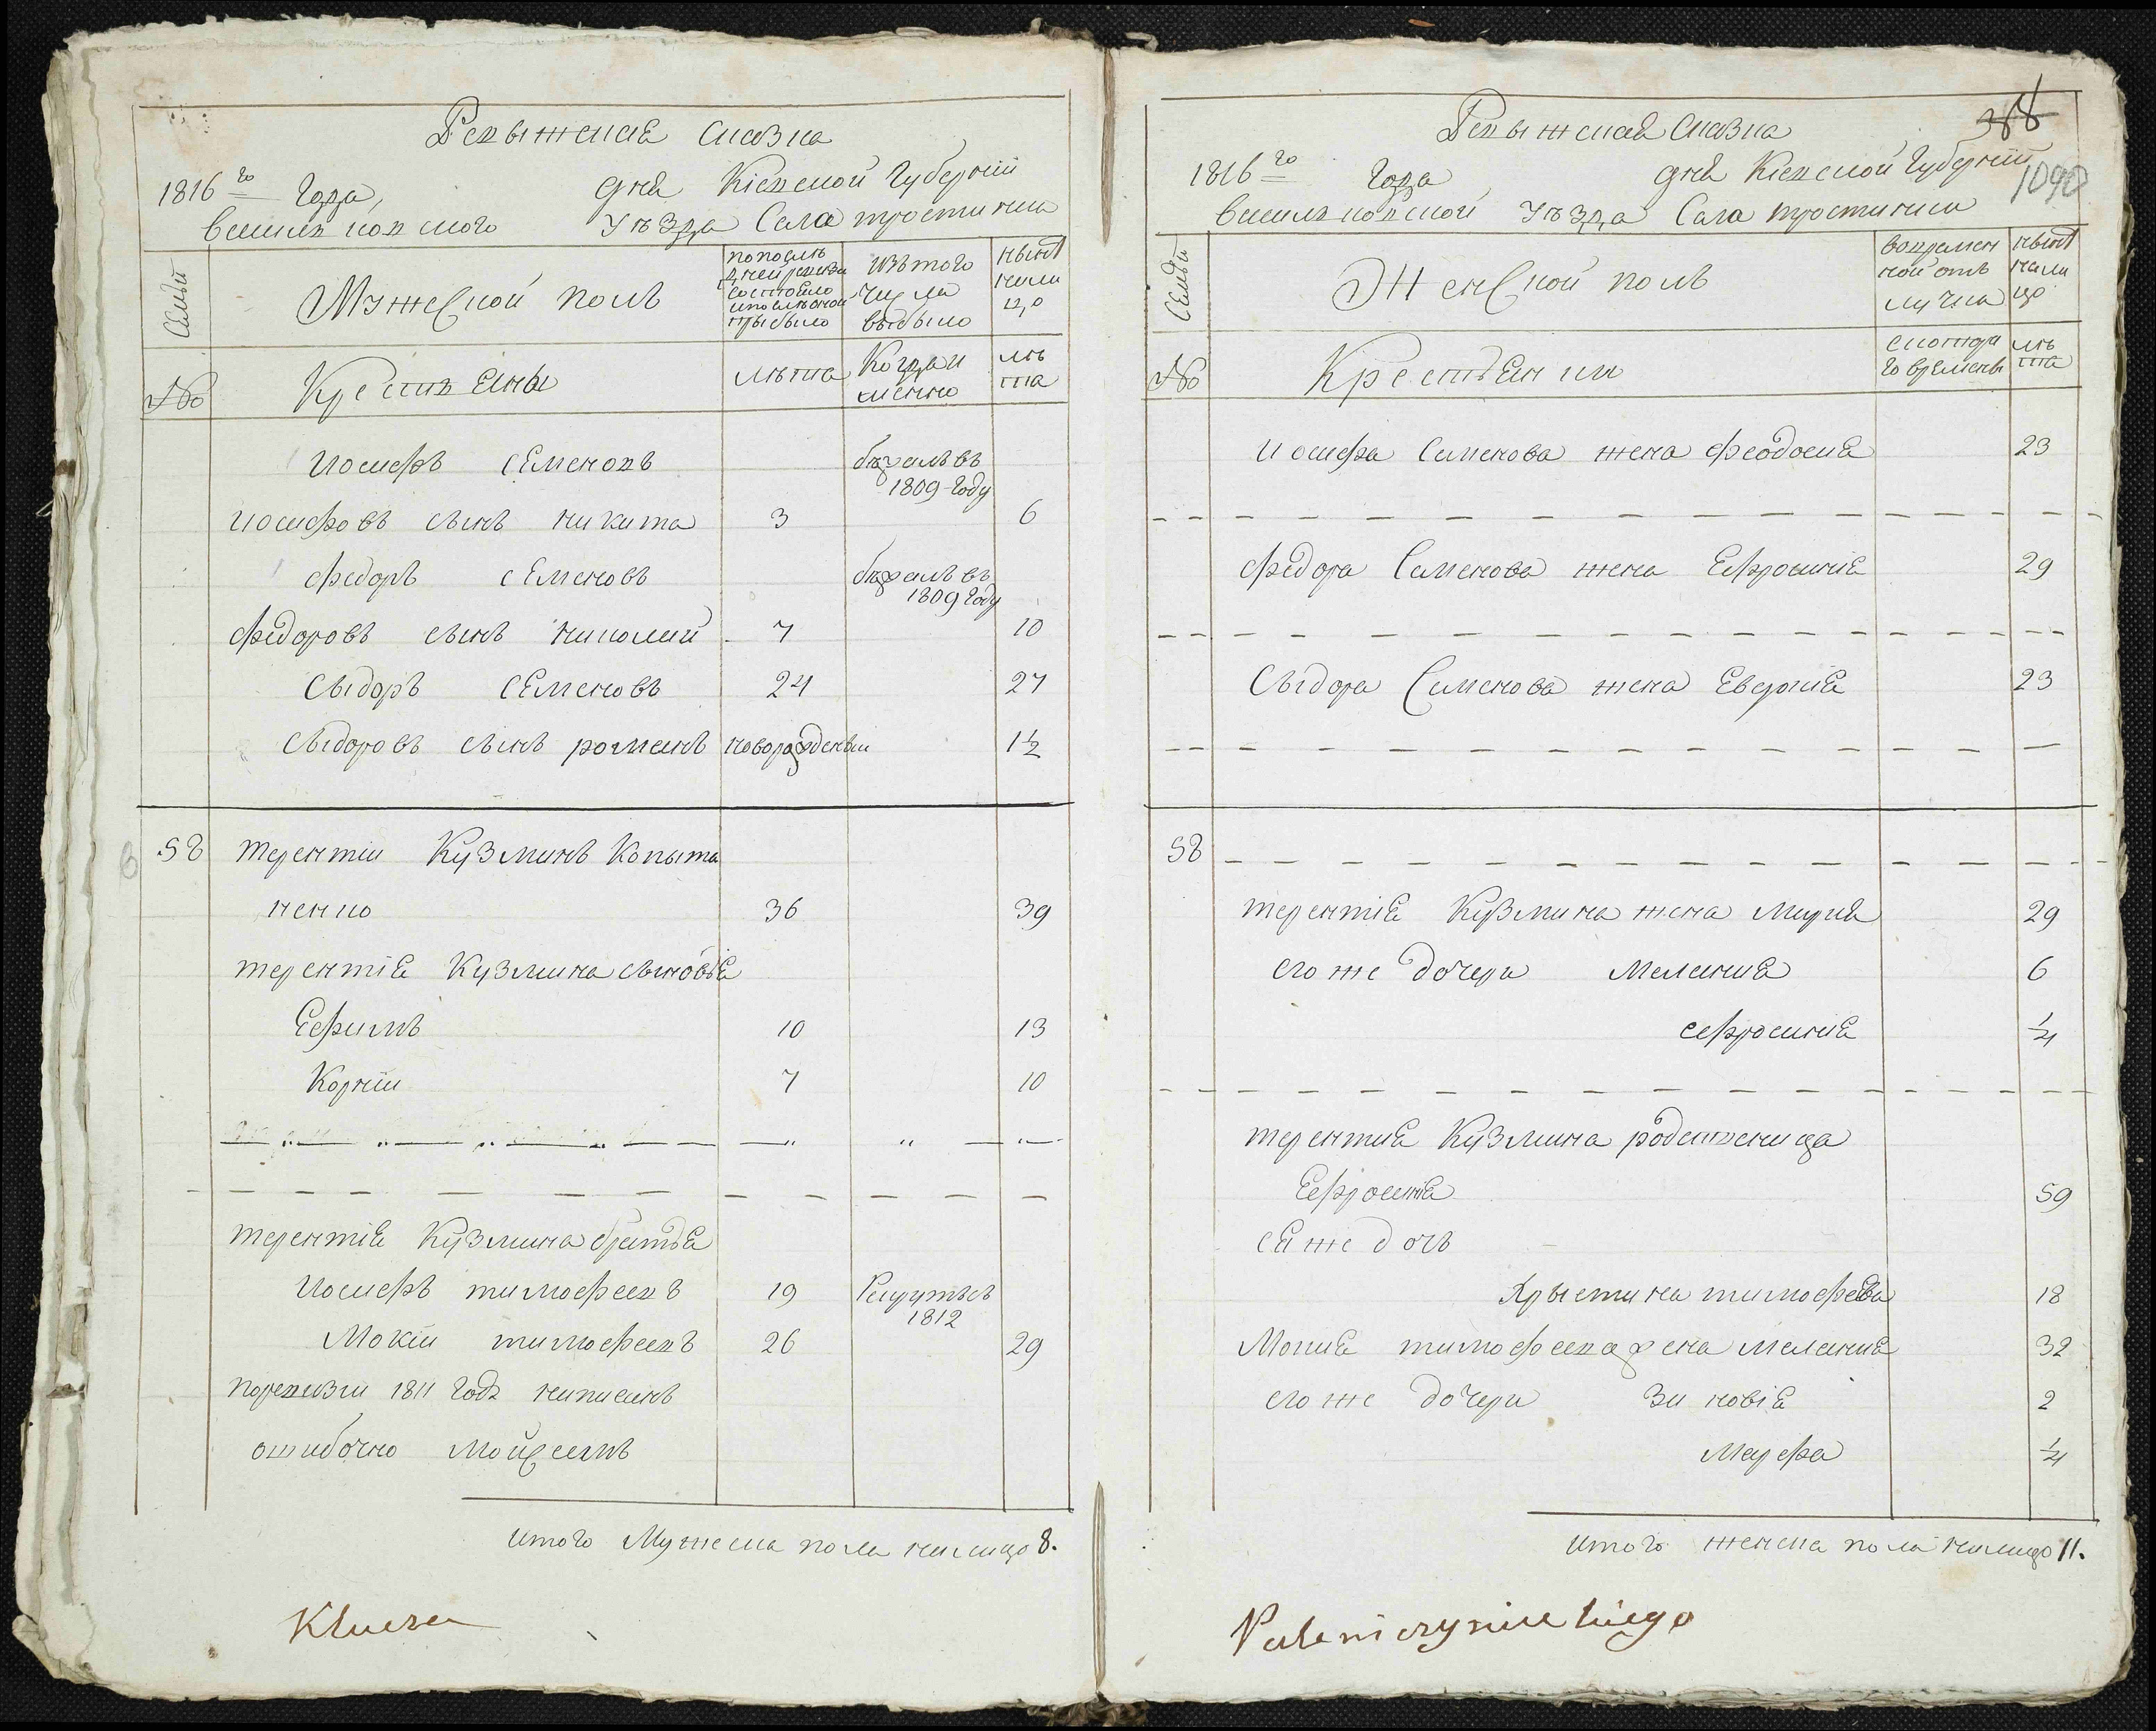 Ревыжская сказка
1816го Года, дня Кіевской Губерніи
василковского Уѣзда Села тростинки
Семьи
Мужеской полъ
по последней ревизи состояло и после оной прыбыло
Изътого числа выбыло
нынѣ налицо
№
Крестяяны
лѣта
Когда именно
лѣта
Иосифъ Семеновъ бѣжалъ въ 1809-Году
иосифовъ сынъ никита 3 6
Федоръ Семеновъ бѣжалъ въ 1809 Году
Федоровъ сынъ николай 7 10
Сыдоръ Семеновъ 24 27
Сыдоровъ сынъ романъ новорожденый 1½
58 терентіи Кузминъ Копыта
ненко 36 39
терентія Кузмина сыновья
Ефимъ 10 13
Корніи 7 10
терентія Кузмина братья
Иосифъ тимофеевъ 19 Рекрутъсъ 1812
Мокіи тимофеевъ 26 29
поревизіи 1811 года написанъ
ошибочно мойсеемъ
итого Мужеска пола налицо 8.
Ревыжская Сказка
388
1090
1816го Года дня Кіевской Губерніи
василковской Уѣзда Села тростинки
Семьи
Женской полъ
вовременной отлучки
нынѣ налицо
№
Крестьянки
скотораго времены
лѣта
иосифа Семенова жена феодосия 23
Федора Семенова жена Ефросиния 29
Сыдора Семенова жена Евгения 23
58
терентія Кузмина жена Мария 29
его же дочери Мелания 6
ефросиния ¼
терентия Кузмина родственица
Ефросинія 59
ея же дочь
Хрыстина тимофеева 18
Мокия тимофеева жена мелания 32
его же дочери Зиновія 2
Марфа ¼
итого женска пола налицо 11.